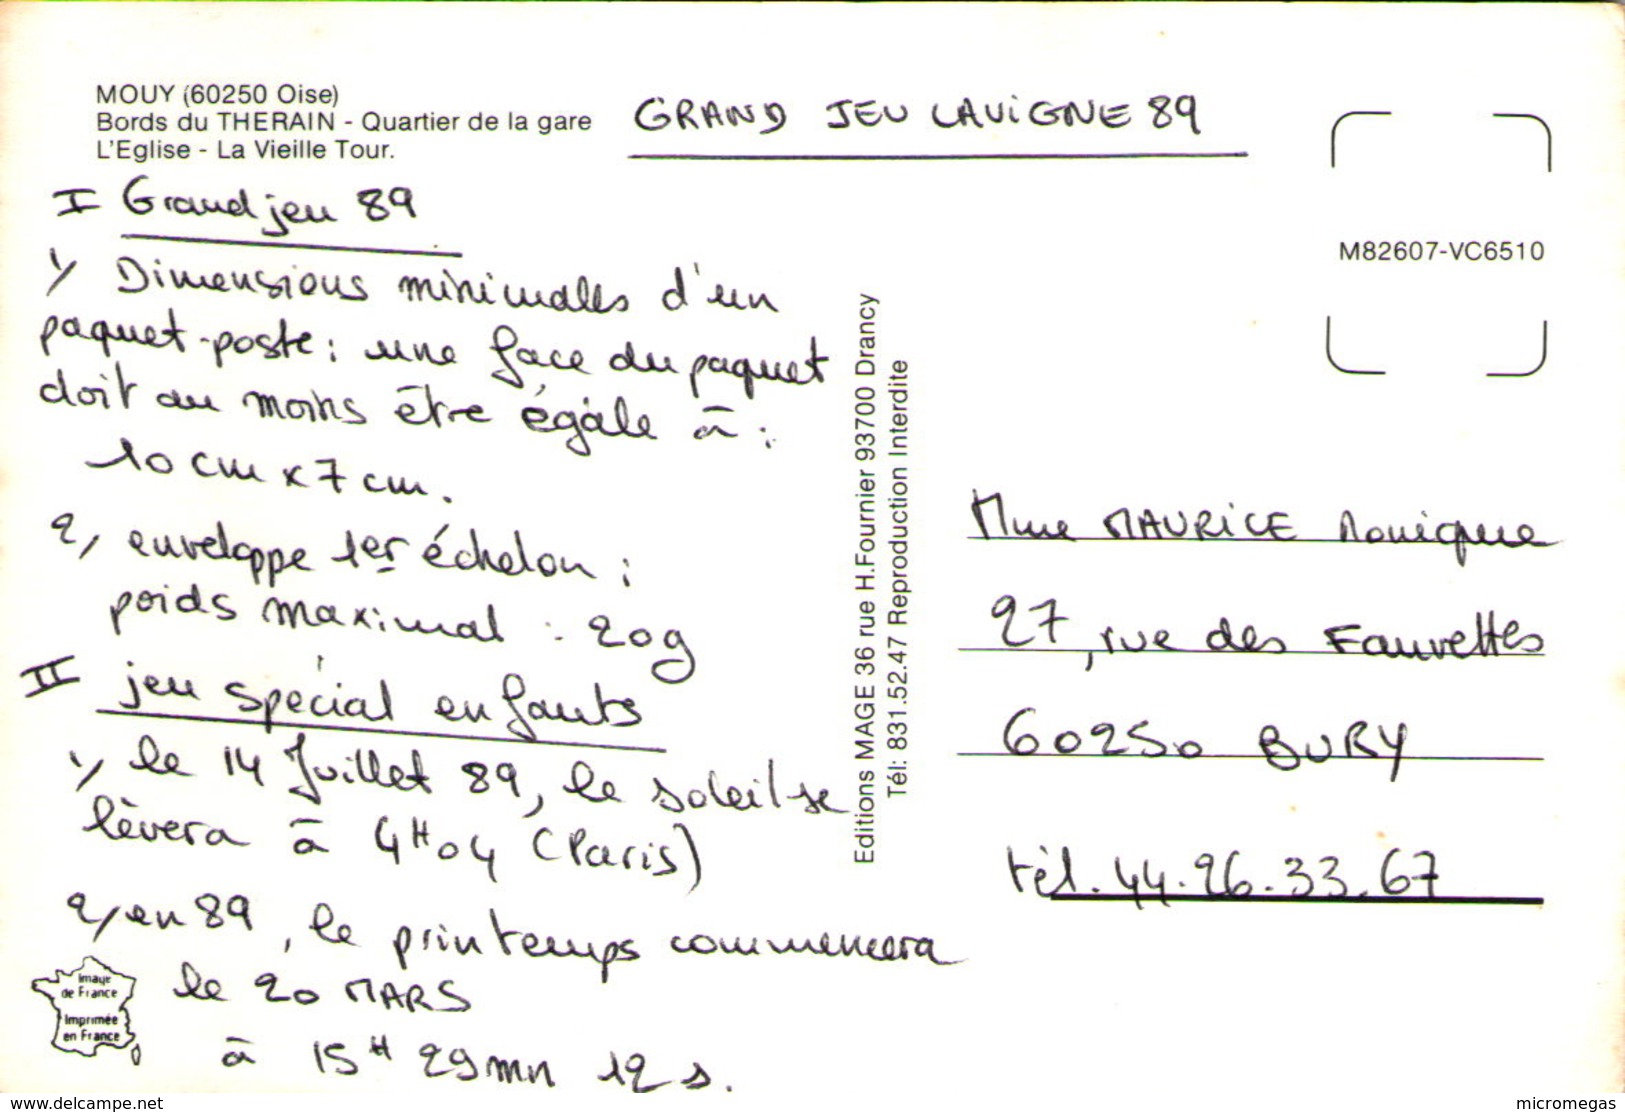 MOUY (60250 Oise)
Bords du THERAIN - Quartier de la gare
L'Eglise - La Vieille Tour.
GRAND JEU LAVIGNE 89
I Grand jeu 89
1/ Dimensions minimales d'un
paquet-poste : une face du paquet
doit au moins être égale à :
10 cm x 7 cm.
2/ enveloppe 1er échelon :
poids maximal : 20g
II jeu spécial enfants
1/ le 14 Juillet 89, le soleil se
lèvera à 4H04 (Paris)
2/ en 89, le printemps commencera
le 20 MARS
à 15H 29mn 12 s.
Image
de France
Imprimée
en France
Editions MAGE 36 rue H.Fournier 93700 Drancy
Tél: 831.52.47 Reproduction Interdite
M82607-VC6510
Mme MAURICE Monique
27, rue des Fauvettes
60250 BURY
tél. 44.26.33.67
www.delcampe.net
micromegas